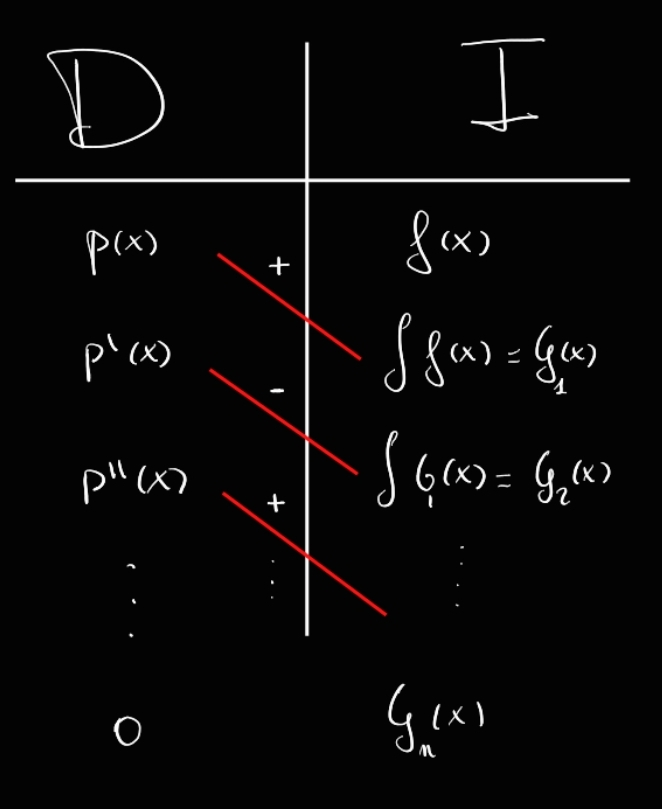 D I
p(x) + f(x)
p'(x) - ∫ f(x) = G₁(x)
p''(x) + ∫ G₁(x) = G₂(x)
⋮ ⋮ ⋮
0 Gₙ(x)